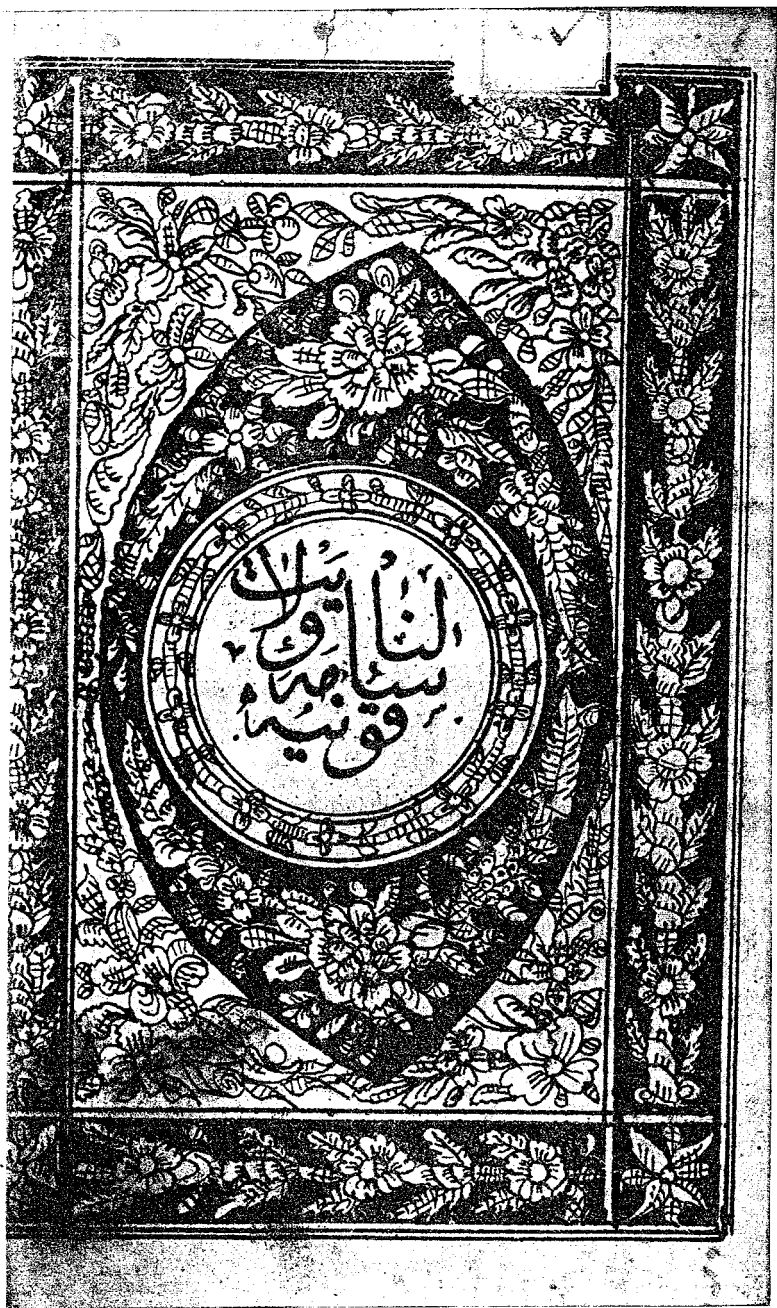 سالنامه
ولايت
قونيه